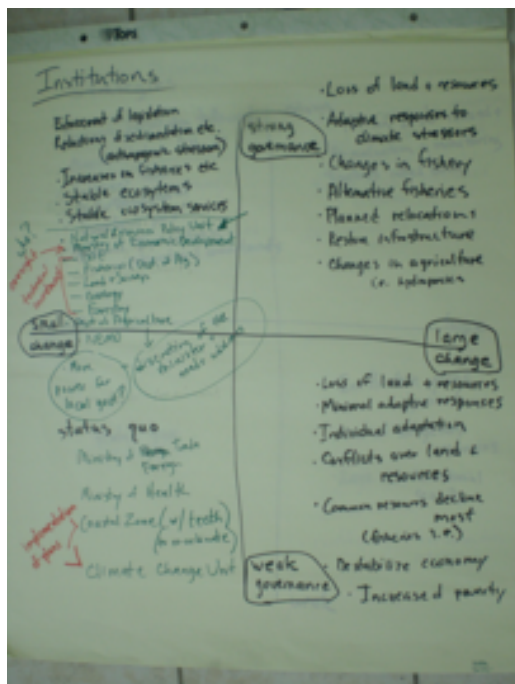 Institutions
Enforcement of legislation
Reductions of sedimentation etc.
(anthropogenic stressors)
· Increases in fisheries etc
· Stable ecosystems
· Stable ecosystem services
· Natural Resource Policy Unit
Ministry of Economic Development
— Fisheries (Dept. of Ag)
— Land + Surveys
— Forestry
small
change
NEMO
More
power for
local govt?
discretion of the
minister
status quo
Ministry of Trade
Foreign
Ministry of Health
Coastal Zone (w/ teeth)
Climate Change Unit
implementation
of plans
strong
governance
· Loss of land + resources
· Adaptive responses to
climate stressors
· Changes in fishery
· Alternative fisheries
· Planned relocations
· Restore infrastructure
· Changes in agriculture
i.e. hydroponics
large
change
· Loss of land + resources
· Minimal adaptive responses
· Individual adaptation
· Conflicts over land &
resources
· Common resources decline
most
(fisheries i.e.)
· Destabilize economy
· Increased poverty
weak
governance